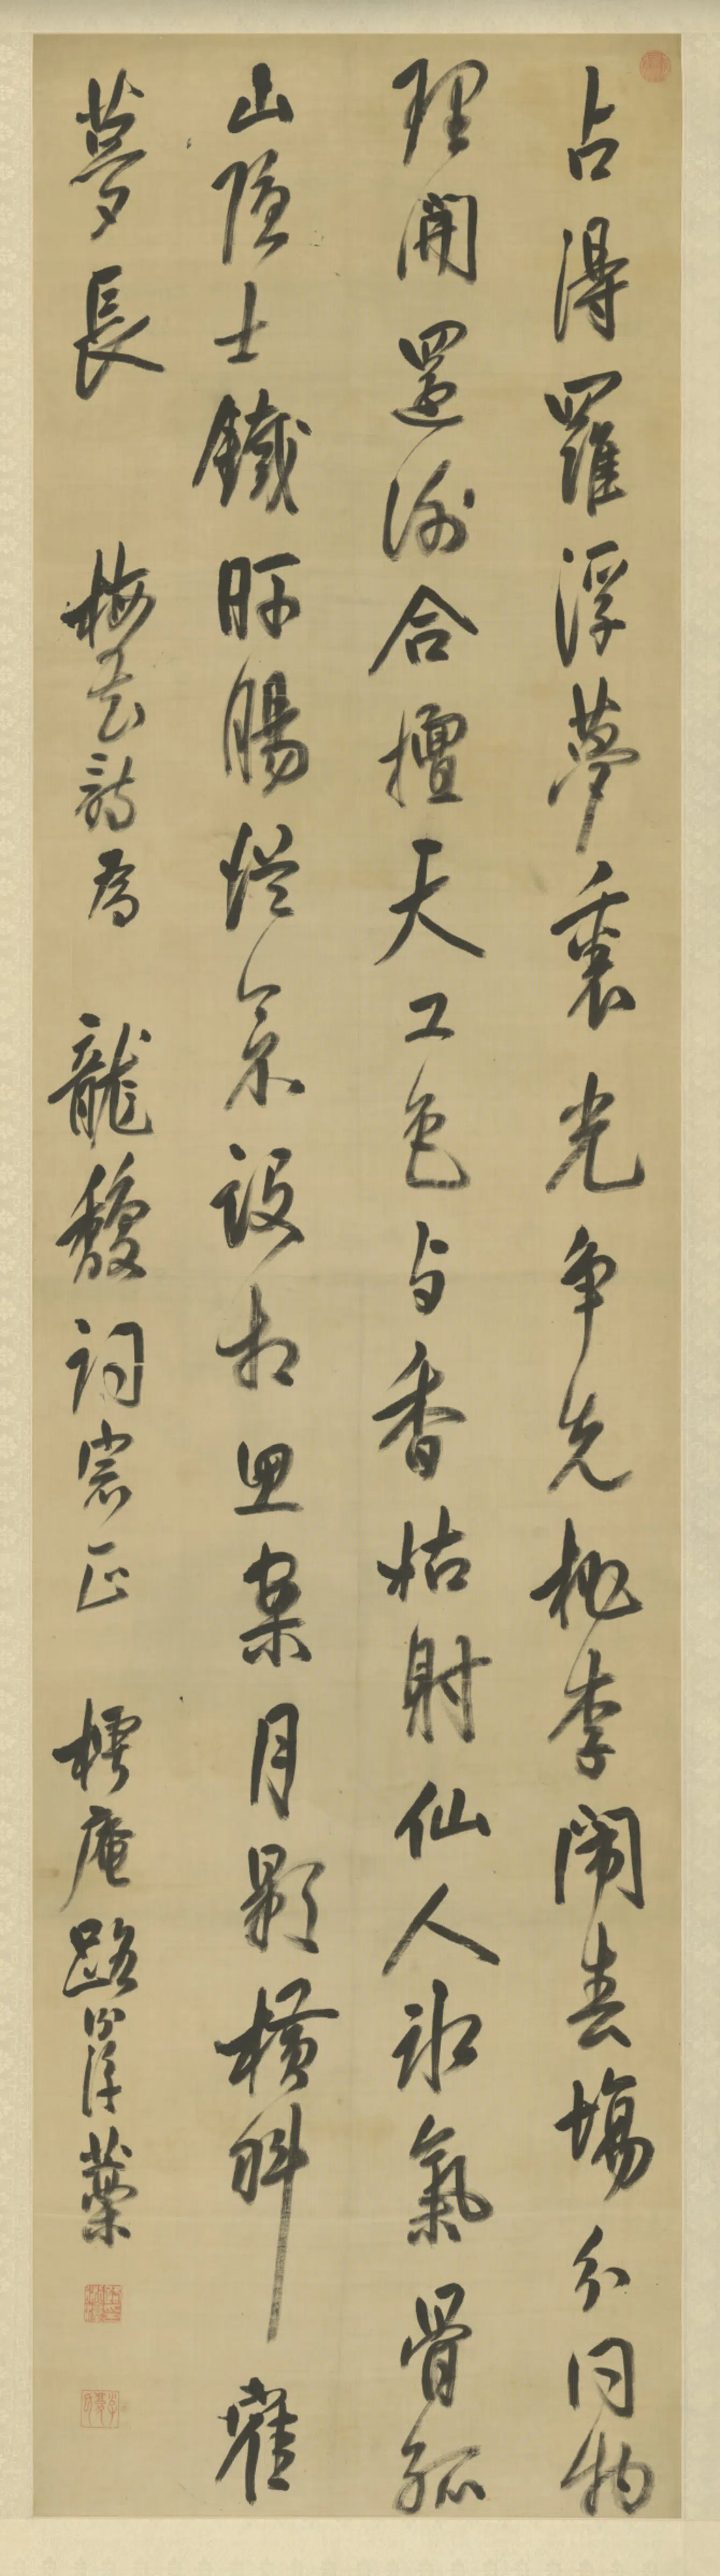 占得羅浮夢裏光争先桃李鬧春場分同物
理開還謝合擅天工色与香姑射仙人冰氣骨孤
山隱士鐵肝腸從設相思案月影橫斜隺
夢長 梅花詩為 龍馥詞宗正 樗庵路藁